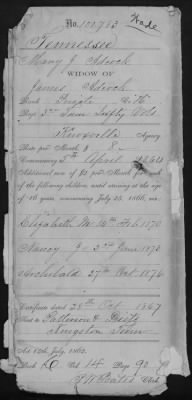 Wade
No. 100783
Tennessee
Mary J Adcock
WIDOW OF
James Adcock
Rank Private Co. K
Regt 5" Tenn Infty Vols
Knoxville Agency
Rate per Month, $ 8 -
Commencing 5th April 1864
Additional sum of $2 per Month for each
of the following children, until arriving at the age
of 16 years, commencing July 25, 1866, viz:
Elizabeth M 16th Feb 1870
Nancy J 2" June 1873
Archibald 27th Oct. 1876
Certificate dated 28th Oct 1867
Sent to Patterson &
Kingston Tenn
Act 14th July, 1862.
Book K Vol. 14 Page 90
Clerk